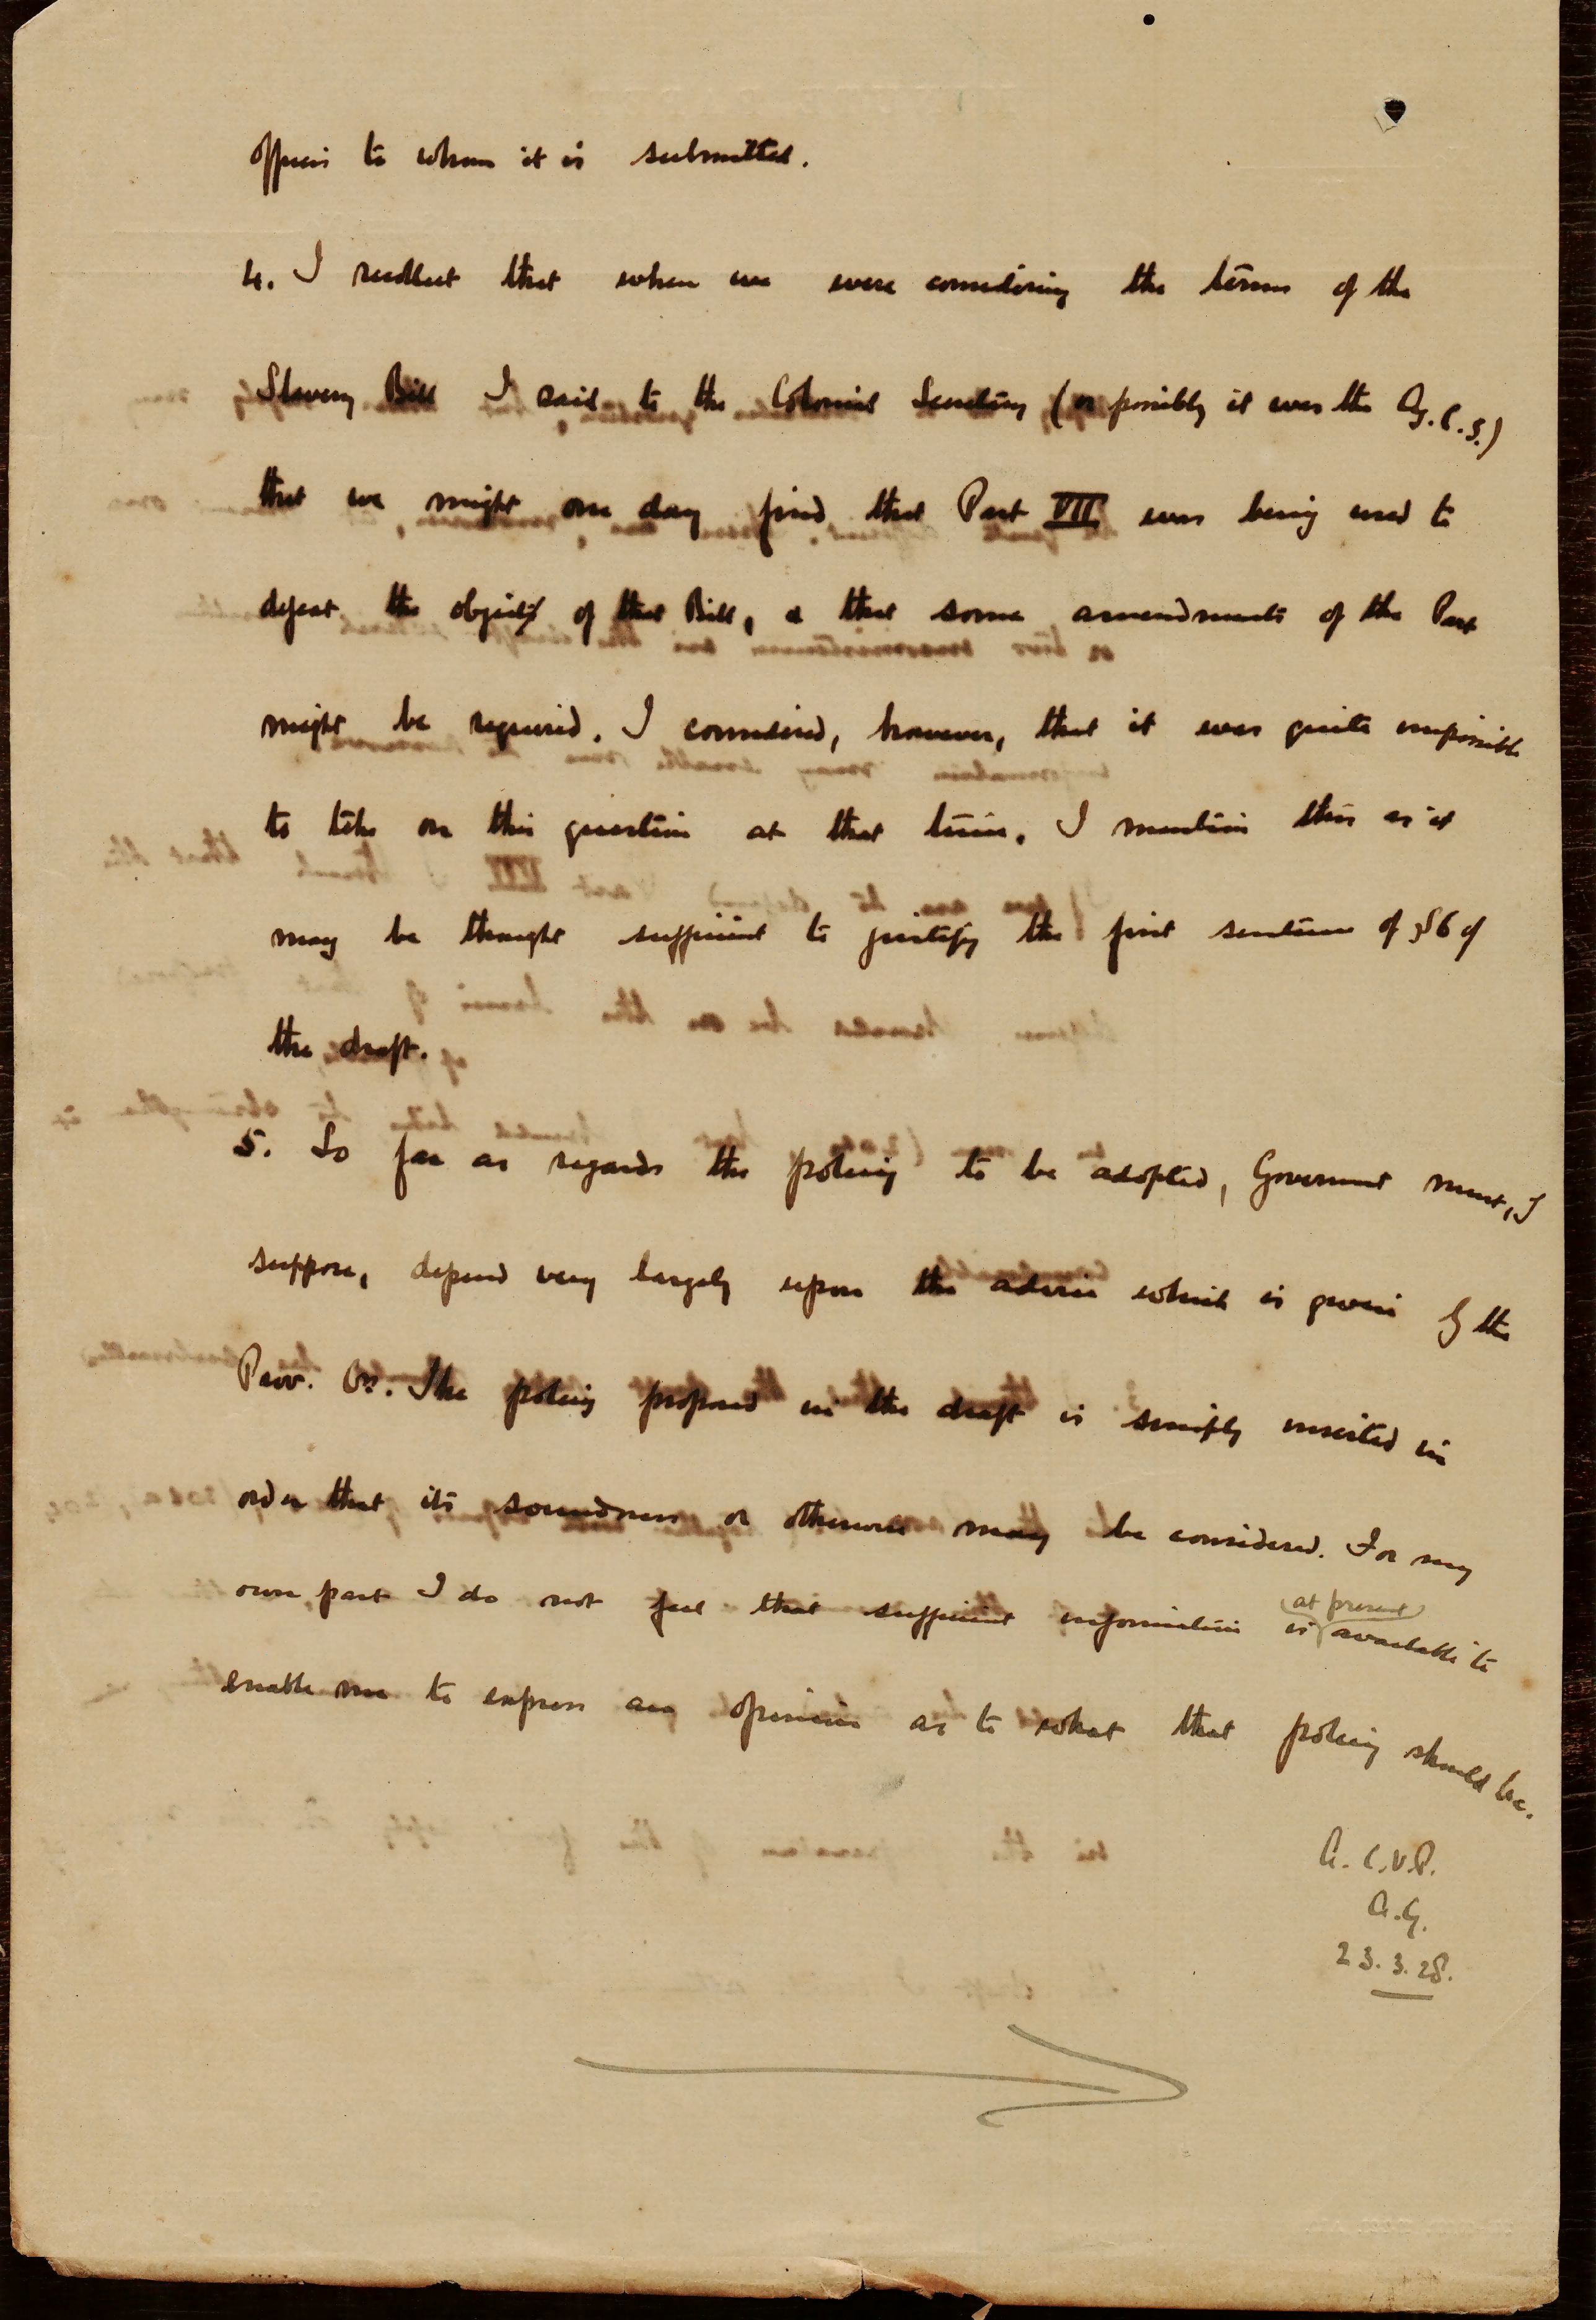 officers to whom it is submitted.
4. I recollect that when we were considering the terms of the
Slavery Bill I said to the Colonial Secretary (or possibly it was the Ag. C.S.)
that we might one day find that Part VII was being used to
defeat the object of that Bill, & that some amendments of the Part
might be required. I considered, however, that it was quite impossible
to take on this question at that time. I mention this as it
may be thought sufficient to justify the first sentence of §6 of
the draft.
5. So far as regards the policy to be adopted, Government must, I
suppose, depend very largely upon the advice which is given by the
Prov. Crs. The policy proposed in the draft is simply inserted in
order that its soundness or otherwise may be considered. For my
own part I do not feel that sufficient information is at present available to
enable me to express an opinion as to what that policy should be.
A. C.V.P.
A.G.
23.3.28.